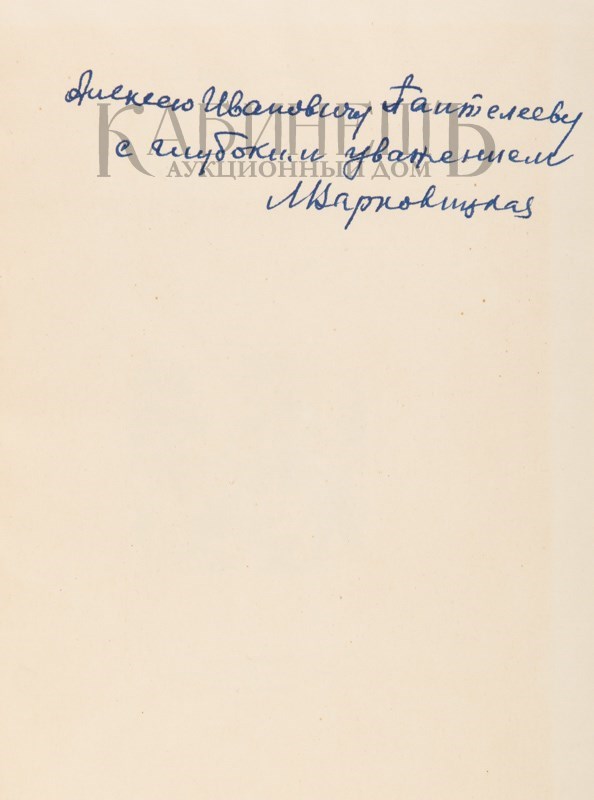 Алексею Ивановичу Пантелееву
КАБИНЕТЪ
с глубоким уважением
АУКЦИОННЫЙ ДОМ
Л Варковицкая